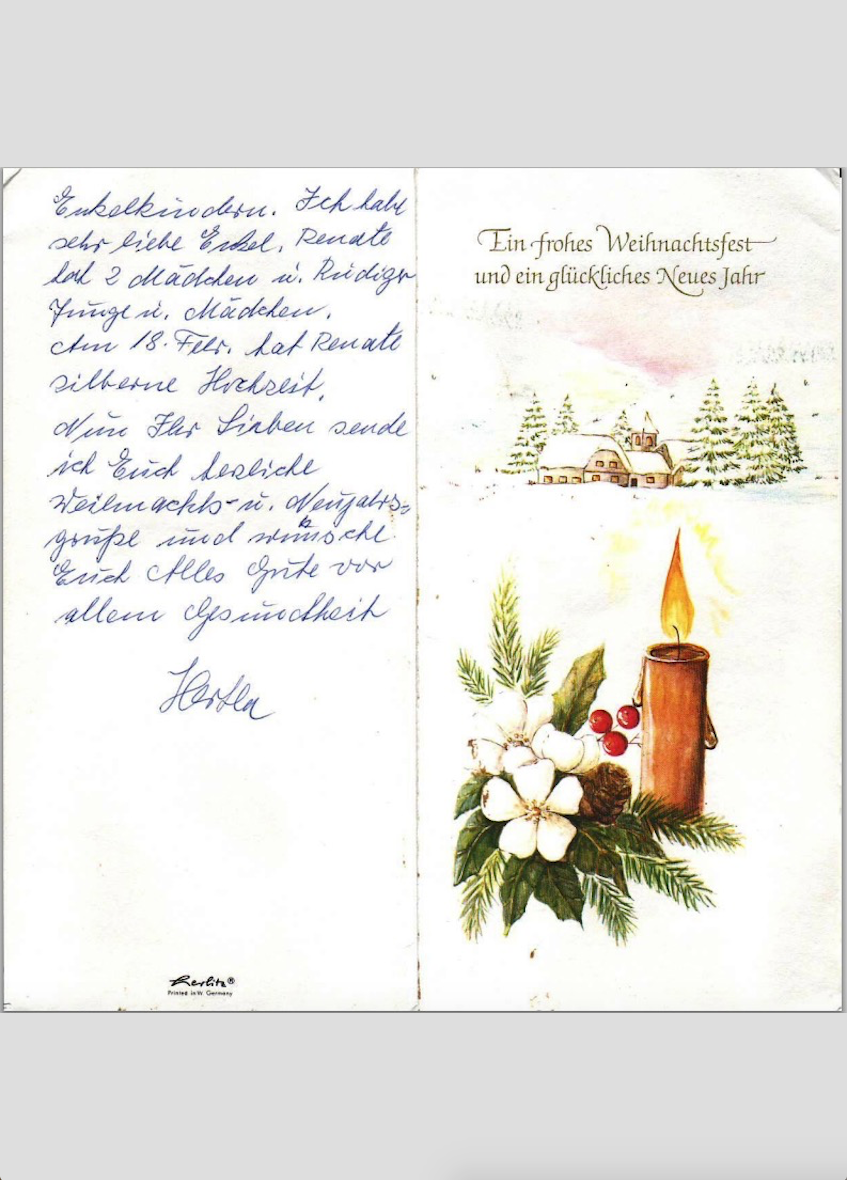 Enkelkindern. Ich habe
sehr liebe Enkel. Renate
hat 2 Mädchen u. Rüdiger
Junge u. Mädchen.
Am 18. Febr. hat Renate
silberne Hochzeit.
Nun Ihr Lieben sende
ich Euch herzliche
Weihnachts- u. Neujahrs-
grüße und wünsche
Euch Alles Gute vor
allem Gesundheit
Hertha
herlitz®
Printed in W. Germany
Ein frohes Weihnachtsfest
und ein glückliches Neues Jahr